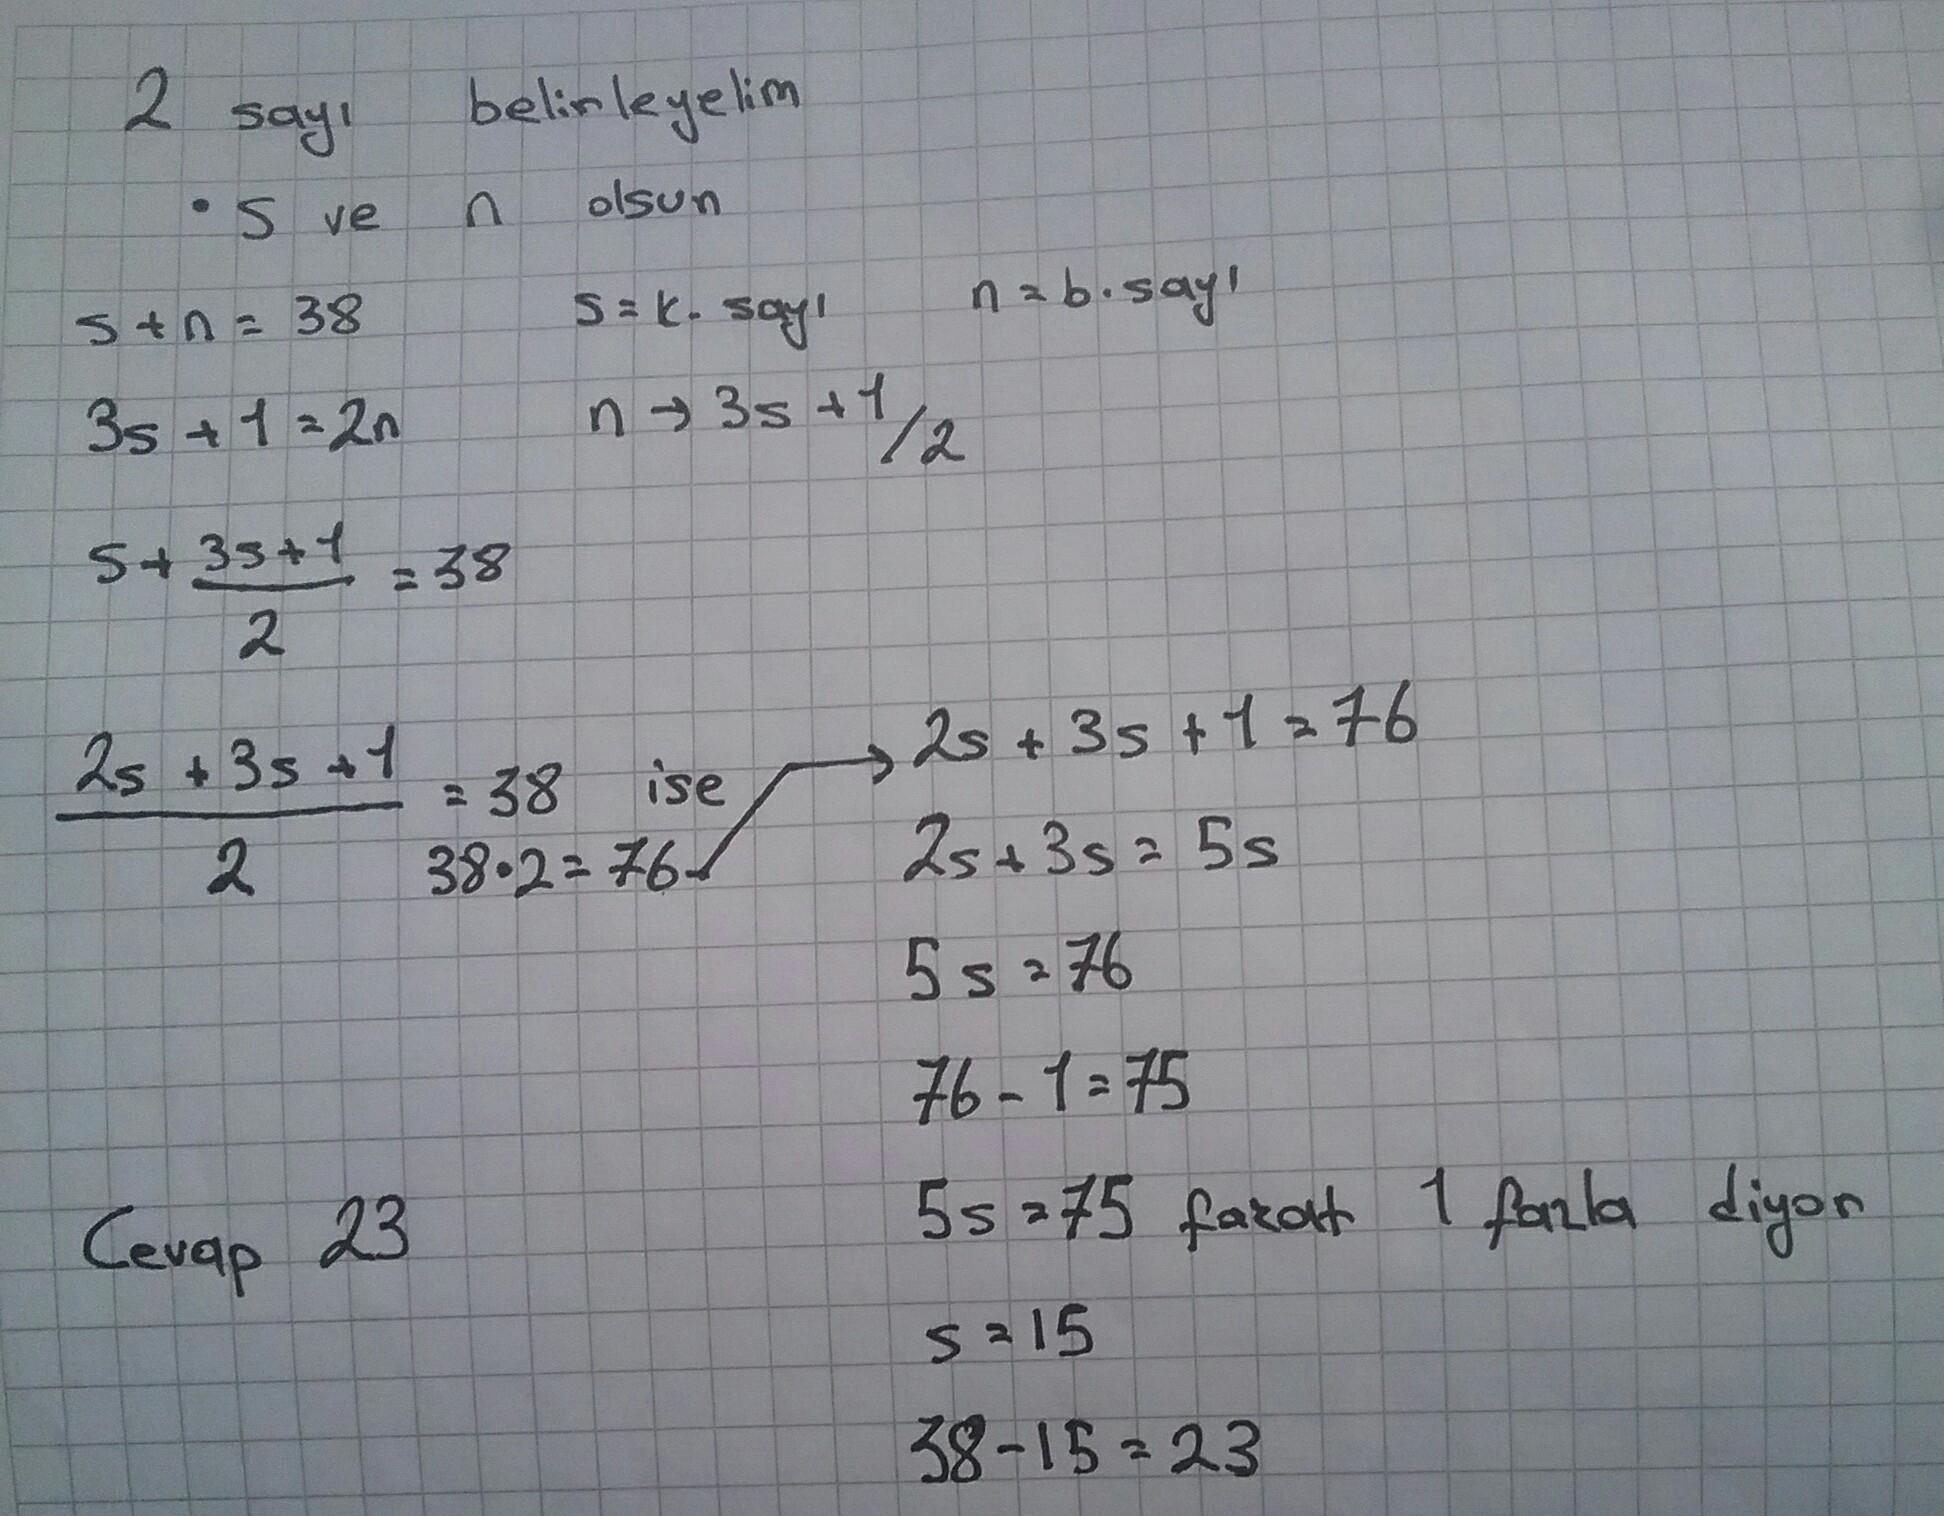 2 sayı belirleyelim
• s ve n olsun
s+n = 38 s = k. sayı n = b. sayı
3s + 1 = 2n n → 3s + 1 / 2
s + 3s+1 / 2 = 38
2s + 3s + 1 / 2 = 38 ise
38•2 = 76 → 2s + 3s + 1 = 76
2s + 3s = 5s
5s = 76
76 - 1 = 75
5s = 75 fakat 1 fazla diyor
s = 15
38 - 15 = 23
Cevap 23